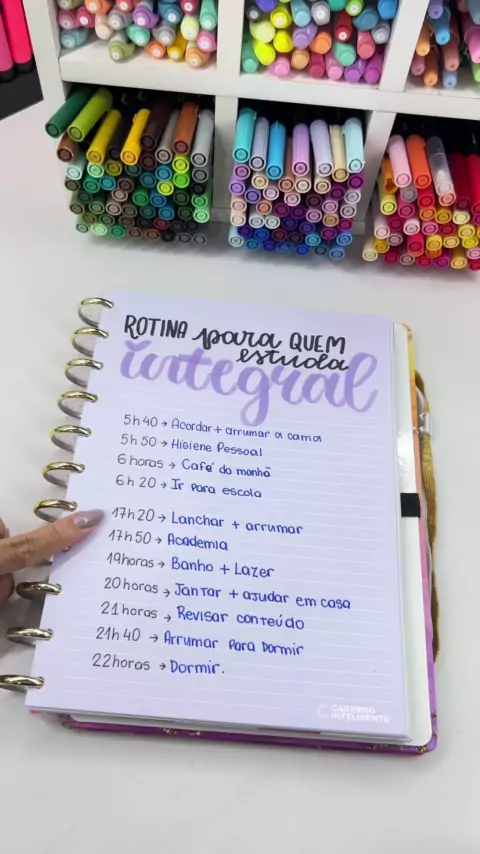 ROTINA para QUEM
estuda
integral
5h40 → Acordar + arrumar a cama
5h50 → Higiene Pessoal
6horas → Café da manhã
6h20 → Ir para escola
17h20 → Lanchar + arrumar
17h50 → Academia
19horas → Banho + Lazer
20horas → Jantar + ajudar em casa
21horas → Revisar conteúdo
21h40 → Arrumar Para Dormir
22horas → Dormir.
CADERNO
INTELIGENTE